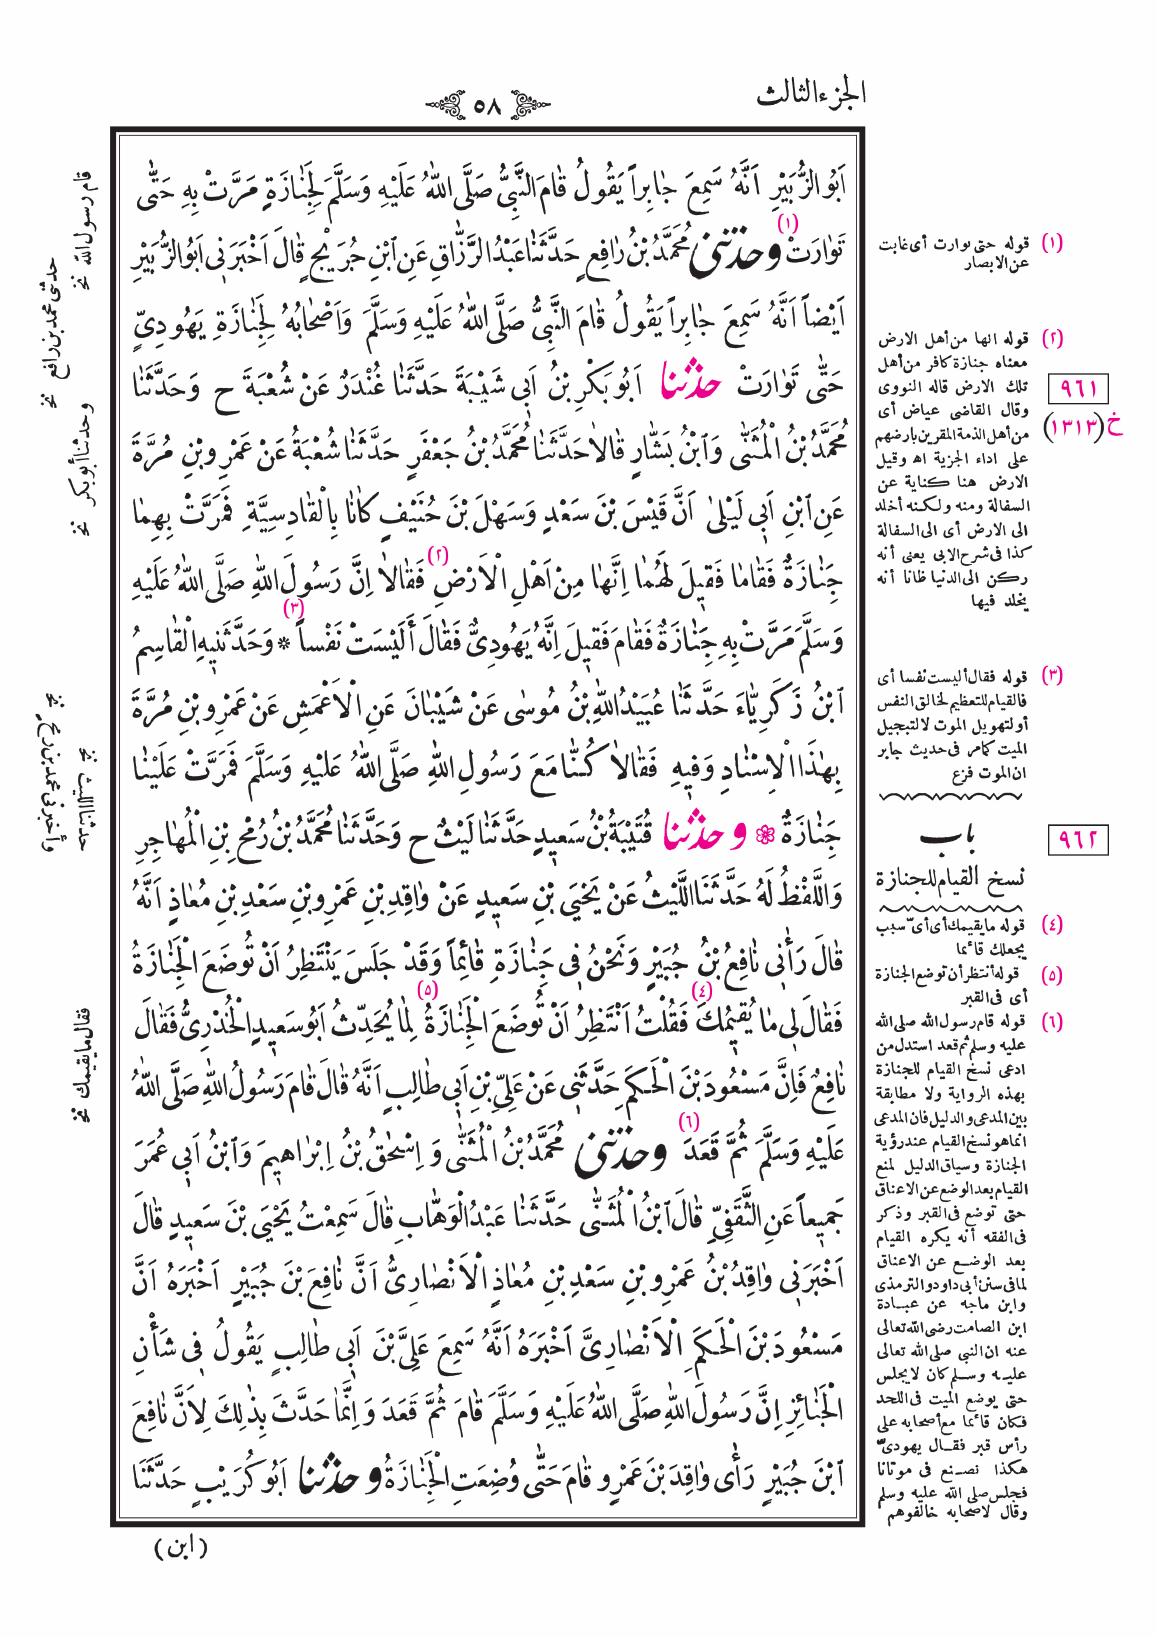 الجزء الثالث
٥٨
اَبُو الزُّبَيْرِ اَنَّهُ سَمِعَ جَابِراً يَقُولُ قَامَ النَّبِيُّ صَلَّى اللهُ عَلَيْهِ وَسَلَّمَ لِجَنَازَةٍ مَرَّتْ بِهِ حَتَّى
تَوَارَتْ (١) وحدثنى مُحَمَّدُ بْنُ رَافِعٍ حَدَّثَنَا عَبْدُ الرَّزَّاقِ عَنِ ابْنِ جُرَيْجٍ قَالَ اَخْبَرَنِى اَبُو الزُّبَيْرِ
اَيْضاً اَنَّهُ سَمِعَ جَابِراً يَقُولُ قَامَ النَّبِيُّ صَلَّى اللهُ عَلَيْهِ وَسَلَّمَ وَاَصْحَابُهُ لِجَنَازَةِ يَهُودِيٍّ
حَتَّى تَوَارَتْ حدثنا اَبُو بَكْرِ بْنُ اَبِى شَيْبَةَ حَدَّثَنَا غُنْدَرٌ عَنْ شُعْبَةَ ح وَحَدَّثَنَا
مُحَمَّدُ بْنُ الْمُثَنَّى وَابْنُ بَشَّارٍ قَالاَ حَدَّثَنَا مُحَمَّدُ بْنُ جَعْفَرٍ حَدَّثَنَا شُعْبَةُ عَنْ عَمْرِو بْنِ مُرَّةَ
عَنِ ابْنِ اَبِى لَيْلَى اَنَّ قَيْسَ بْنَ سَعْدٍ وَسَهْلَ بْنَ حُنَيْفٍ كَانَا بِالْقَادِسِيَّةِ فَمَرَّتْ بِهِمَا
جَنَازَةٌ فَقَامَا فَقِيلَ لَهُمَا اِنَّهَا مِنْ اَهْلِ الْاَرْضِ (٢) فَقَالاَ اِنَّ رَسُولَ اللهِ صَلَّى اللهُ عَلَيْهِ
وَسَلَّمَ مَرَّتْ بِهِ جَنَازَةٌ فَقَامَ فَقِيلَ اِنَّهُ يَهُودِيٌّ فَقَالَ أَلَيْسَتْ نَفْساً (٣) * وَحَدَّثَنِيهِ الْقَاسِمُ
ابْنُ زَكَرِيَّاءَ حَدَّثَنَا عُبَيْدُ اللهِ بْنُ مُوسَى عَنْ شَيْبَانَ عَنِ الْاَعْمَشِ عَنْ عَمْرِو بْنِ مُرَّةَ
بِهٰذَا الْاِسْنَادِ وَفِيهِ فَقَالاَ كُنَّا مَعَ رَسُولِ اللهِ صَلَّى اللهُ عَلَيْهِ وَسَلَّمَ فَمَرَّتْ عَلَيْنَا
جَنَازَةٌ * و حدثنا قُتَيْبَةُ بْنُ سَعِيدٍ حَدَّثَنَا لَيْثٌ ح وَحَدَّثَنَا مُحَمَّدُ بْنُ رُمْحِ بْنِ الْمُهَاجِرِ
وَاللَّفْظُ لَهُ حَدَّثَنَا اللَّيْثُ عَنْ يَحْيَى بْنِ سَعِيدٍ عَنْ وَاقِدِ بْنِ عَمْرِو بْنِ سَعْدِ بْنِ مُعَاذٍ اَنَّهُ
قَالَ رَآنِى نَافِعُ بْنُ جُبَيْرٍ وَنَحْنُ فِى جَنَازَةٍ قَائِماً وَقَدْ جَلَسَ يَنْتَظِرُ اَنْ تُوضَعَ الْجَنَازَةُ
فَقَالَ لِى مَا يُقِيمُكَ (٤) فَقُلْتُ اَنْتَظِرُ اَنْ تُوضَعَ الْجَنَازَةُ (٥) لِمَا يُحَدِّثُ اَبُو سَعِيدٍ الْخُدْرِيُّ فَقَالَ
نَافِعٌ فَاِنَّ مَسْعُودَ بْنَ الْحَكَمِ حَدَّثَنِى عَنْ عَلِيِّ بْنِ اَبِى طَالِبٍ اَنَّهُ قَالَ قَامَ رَسُولُ اللهِ صَلَّى اللهُ
عَلَيْهِ وَسَلَّمَ ثُمَّ قَعَدَ (٦) وحدثنى مُحَمَّدُ بْنُ الْمُثَنَّى وَ اِسْحٰقُ بْنُ اِبْرَاهِيمَ وَابْنُ اَبِى عُمَرَ
جَمِيعاً عَنِ الثَّقَفِيِّ قَالَ ابْنُ الْمُثَنَّى حَدَّثَنَا عَبْدُ الْوَهَّابِ قَالَ سَمِعْتُ يَحْيَى بْنَ سَعِيدٍ قَالَ
اَخْبَرَنِى وَاقِدُ بْنُ عَمْرِو بْنِ سَعْدِ بْنِ مُعَاذٍ الْاَنْصَارِيُّ اَنَّ نَافِعَ بْنَ جُبَيْرٍ اَخْبَرَهُ اَنَّ
مَسْعُودَ بْنَ الْحَكَمِ الْاَنْصَارِيَّ اَخْبَرَهُ اَنَّهُ سَمِعَ عَلِيَّ بْنَ اَبِى طَالِبٍ يَقُولُ فِى شَأْنِ
الْجَنَائِزِ اِنَّ رَسُولَ اللهِ صَلَّى اللهُ عَلَيْهِ وَسَلَّمَ قَامَ ثُمَّ قَعَدَ وَ اِنَّمَا حَدَّثَ بِذٰلِكَ لِاَنَّ نَافِعَ
ابْنَ جُبَيْرٍ رَأَى وَاقِدَ بْنَ عَمْرٍو قَامَ حَتَّى وُضِعَتِ الْجَنَازَةُ و حدثنا اَبُو كُرَيْبٍ حَدَّثَنَا
( ابن )
(١) قوله حتى توارت أى غابت
عن الابصار
(٢) قوله انها من أهل الارض
معناه جنازة كافر من أهل
تلك الارض قاله النووى
وقال القاضى عياض أى
من أهل الذمة المقرين بارضهم
على اداء الجزية اه وقيل
الارض هنا كناية عن
السفالة ومنه ولكنه أخلد
الى الارض أى الى السفالة
كذا فى شرح الابى يعنى أنه
ركن الى الدنيا ظانا أنه
يخلد فيها
٩٦١
خ (١٣١٣)
(٣) قوله فقال أليست نفسا أى
فالقيام للتعظيم لخالق النفس
أو لتهويل الموت لا لتبجيل
الميت كما مر فى حديث جابر
ان الموت فزع
باب
نسخ القيام للجنازة
٩٦٢
(٤) قوله ما يقيمك أى أىّ سبب
يجعلك قائما
(٥) قوله أنتظر أن توضع الجنازة
أى فى القبر
(٦) قوله قام رسول الله صلى الله
عليه وسلم ثم قعد استدل من
ادعى نسخ القيام للجنازة
بهذه الرواية ولا مطابقة
بين المدعى والدليل فان المدعى
انما هو نسخ القيام عند رؤية
الجنازة وسياق الدليل لمنع
القيام بعد الوضع عن الاعناق
حتى توضع فى القبر وذكر
فى الفقه أنه يكره القيام
بعد الوضع عن الاعناق
لما فى سنن أبى داود والترمذى
وابن ماجه عن عبادة
ابن الصامت رضى الله تعالى
عنه ان النبى صلى الله تعالى
عليه وسلم كان لا يجلس
حتى يوضع الميت فى اللحد
فكان قائما مع أصحابه على
رأس قبر فقال يهودىّ
هكذا نصنع فى موتانا
فجلس صلى الله عليه وسلم
وقال لاصحابه خالفوهم
قام رسول الله نخ
حدثنى محمد بن رافع نخ
وحدثنا أبو بكر نخ
حدثنا الليث نخ
وأخبرنى محمد بن رمح نخ
فقال ما يقيمك نخ